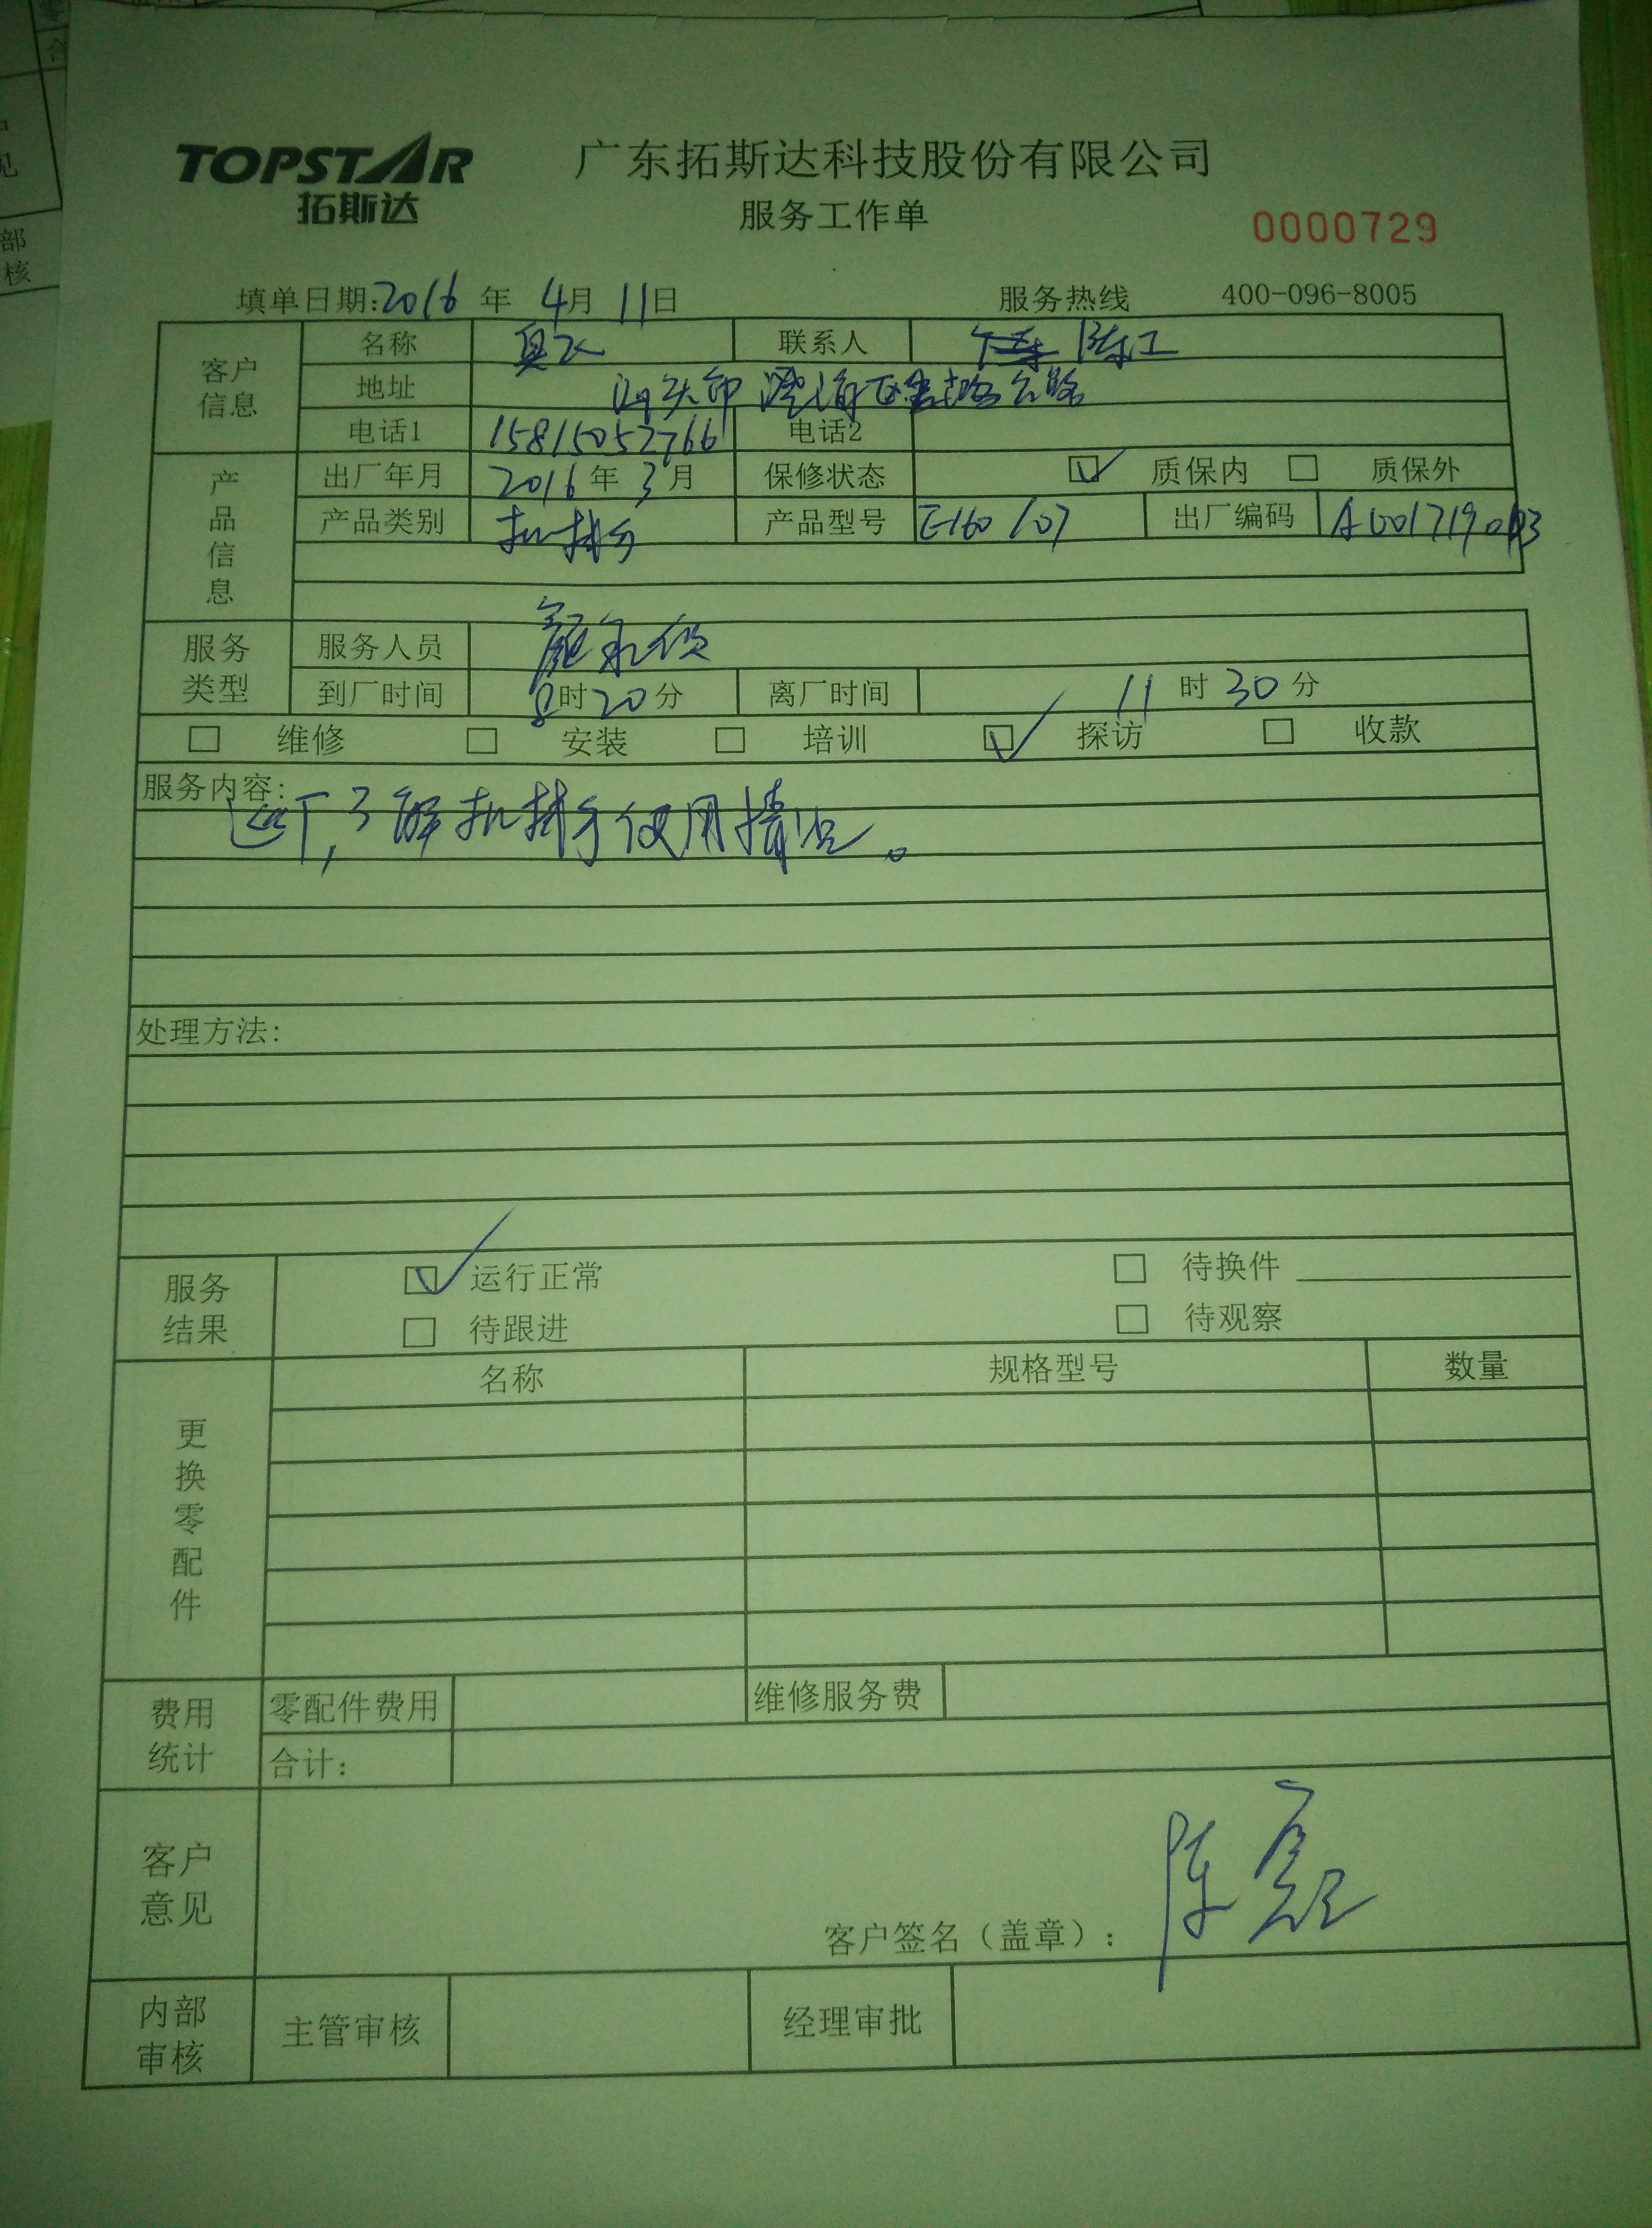 TOPSTAR
拓斯达
广东拓斯达科技股份有限公司
服务工作单
0000729
填单日期:2016 年 4月 11日 服务热线 400-096-8005
客户信息
名称 联系人 陈工
地址 汕头市 澄海区
电话1 15815052766 电话2
产品信息
出厂年月 2016年 3月 保修状态 质保内 质保外
产品类别 机械手 产品型号 E160 107 出厂编码
服务类型
服务人员
到厂时间 8时20分 离厂时间 11时30分
维修 安装 培训 探访 收款
服务内容:
了解机械手使用情况。
处理方法:
服务结果
运行正常 待换件
待跟进 待观察
更换零配件
名称 规格型号 数量
费用统计
零配件费用 维修服务费
合计:
客户意见
客户签名（盖章）: 陈
内部审核
主管审核 经理审批
部
核